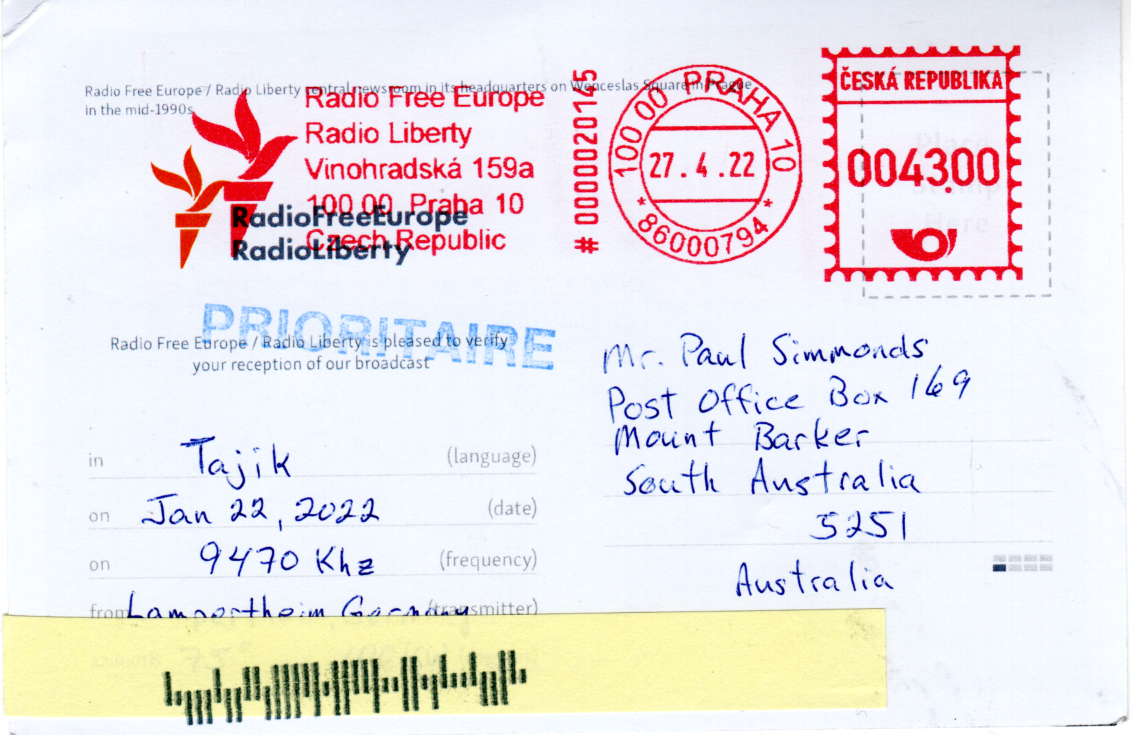 Radio Free Europe / Radio Liberty central newsroom in its headquarters on Wenceslas Square in Prague
in the mid-1990s
Radio Free Europe
Radio Liberty
Vinohradská 159a
100 00 Praha 10
Czech Republic
RadioFreeEurope
RadioLiberty
# 0000020145
100 00 PRAHA 10
27.4.22
* 86000794 *
ČESKÁ REPUBLIKA
004300
Place
Stamp
Here
PRIORITAIRE
Radio Free Europe / Radio Liberty is pleased to verify
your reception of our broadcast
in Tajik (language)
on Jan 22, 2022 (date)
on 9470 Khz (frequency)
from Lampertheim, Germany (transmitter)
azimuth 75°
Mr. Paul Simmonds
Post Office Box 169
Mount Barker
South Australia
5251
Australia